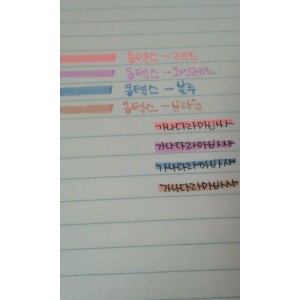 몽덱스 - 레드
몽덱스 - 오렌레드
몽덱스 - 블루
몽덱스 - 브라운
가나다라마바사
가나다라마바사
가나다라마바사
가나다라마바사